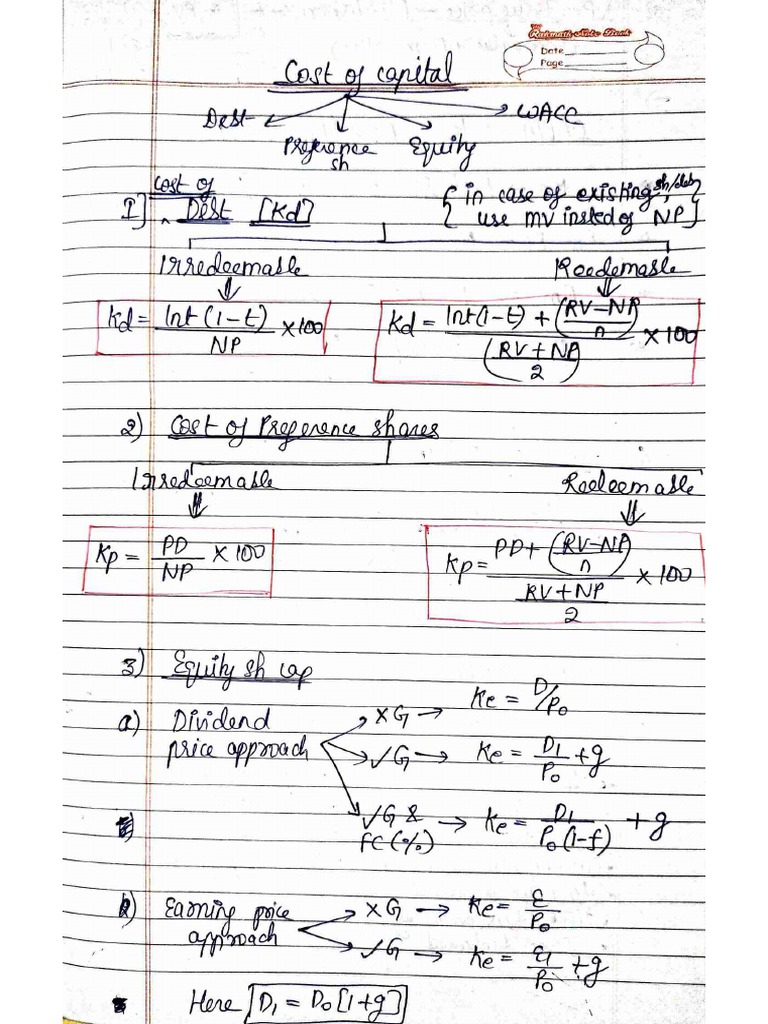 Date
Page
Cost of capital
Debt
WACC
Preference sh
Equity
1] cost of Debt [Kd]
{in case of existing sh/deb, use mv insted of NP}
Irredeemable
Reedemable
Kd = Int(1-t) / NP × 100
Kd = Int(1-t) + (RV-NP / n) / (RV+NP / 2) × 100
2) Cost of Preference shares
Irredeemable
Redeemable
Kp = PD / NP × 100
Kp = PD + (RV-NP / n) / RV+NP / 2 × 100
3) Equity sh cap
a) Dividend price approach
×G → Ke = D/P₀
✓G → Ke = D₁ / P₀ + g
✓G & FC(%) → Ke = D₁ / P₀(1-f) + g
b) Earning price approach
×G → Ke = E / P₀
✓G → Ke = E₁ / P₀ + g
Here D₁ = D₀[1+g]